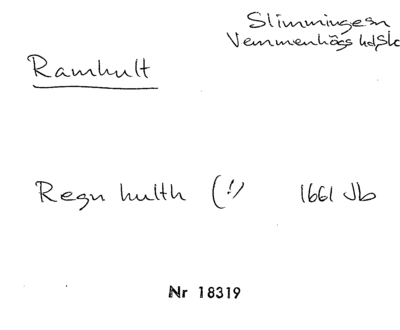 Slimminge sn
Vemmenhögs hd, Sk
Ramhult
Regn hulth (!) 1661 Jb
Nr 18319